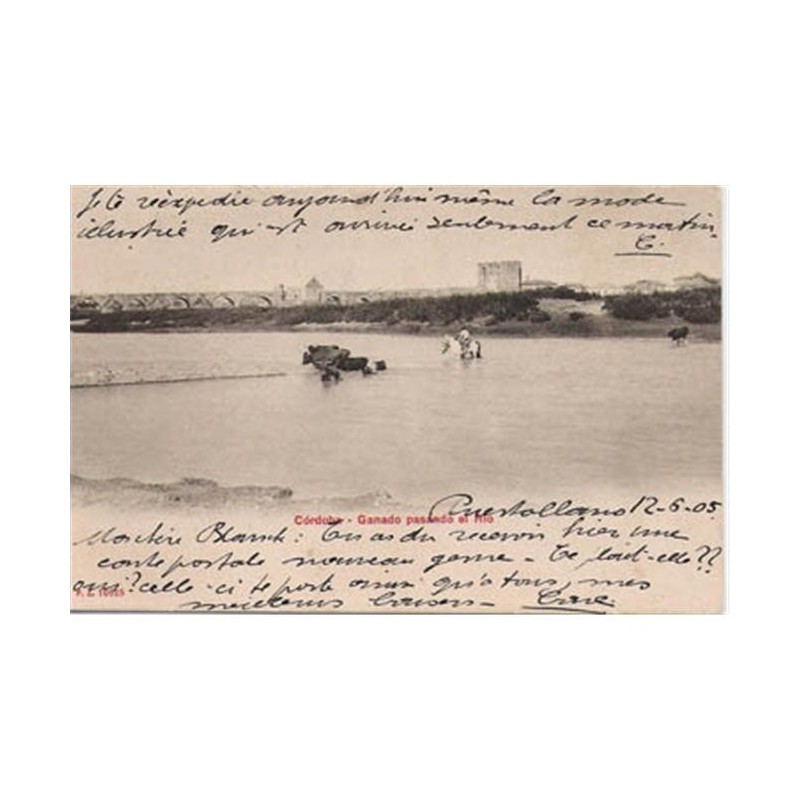 Je te réexpédie aujourd'hui même la mode
illustrée qui est arrivée seulement ce matin.
C.
Puertollano 12-6-05
Córdoba - Ganado pasando el Río
Blanche : Tu as du recevoir hier une
carte postale nouveau genre - Te plait-elle ??
oui ? celle-ci te porte ainsi qu'à tous, mes
meilleurs baisers -